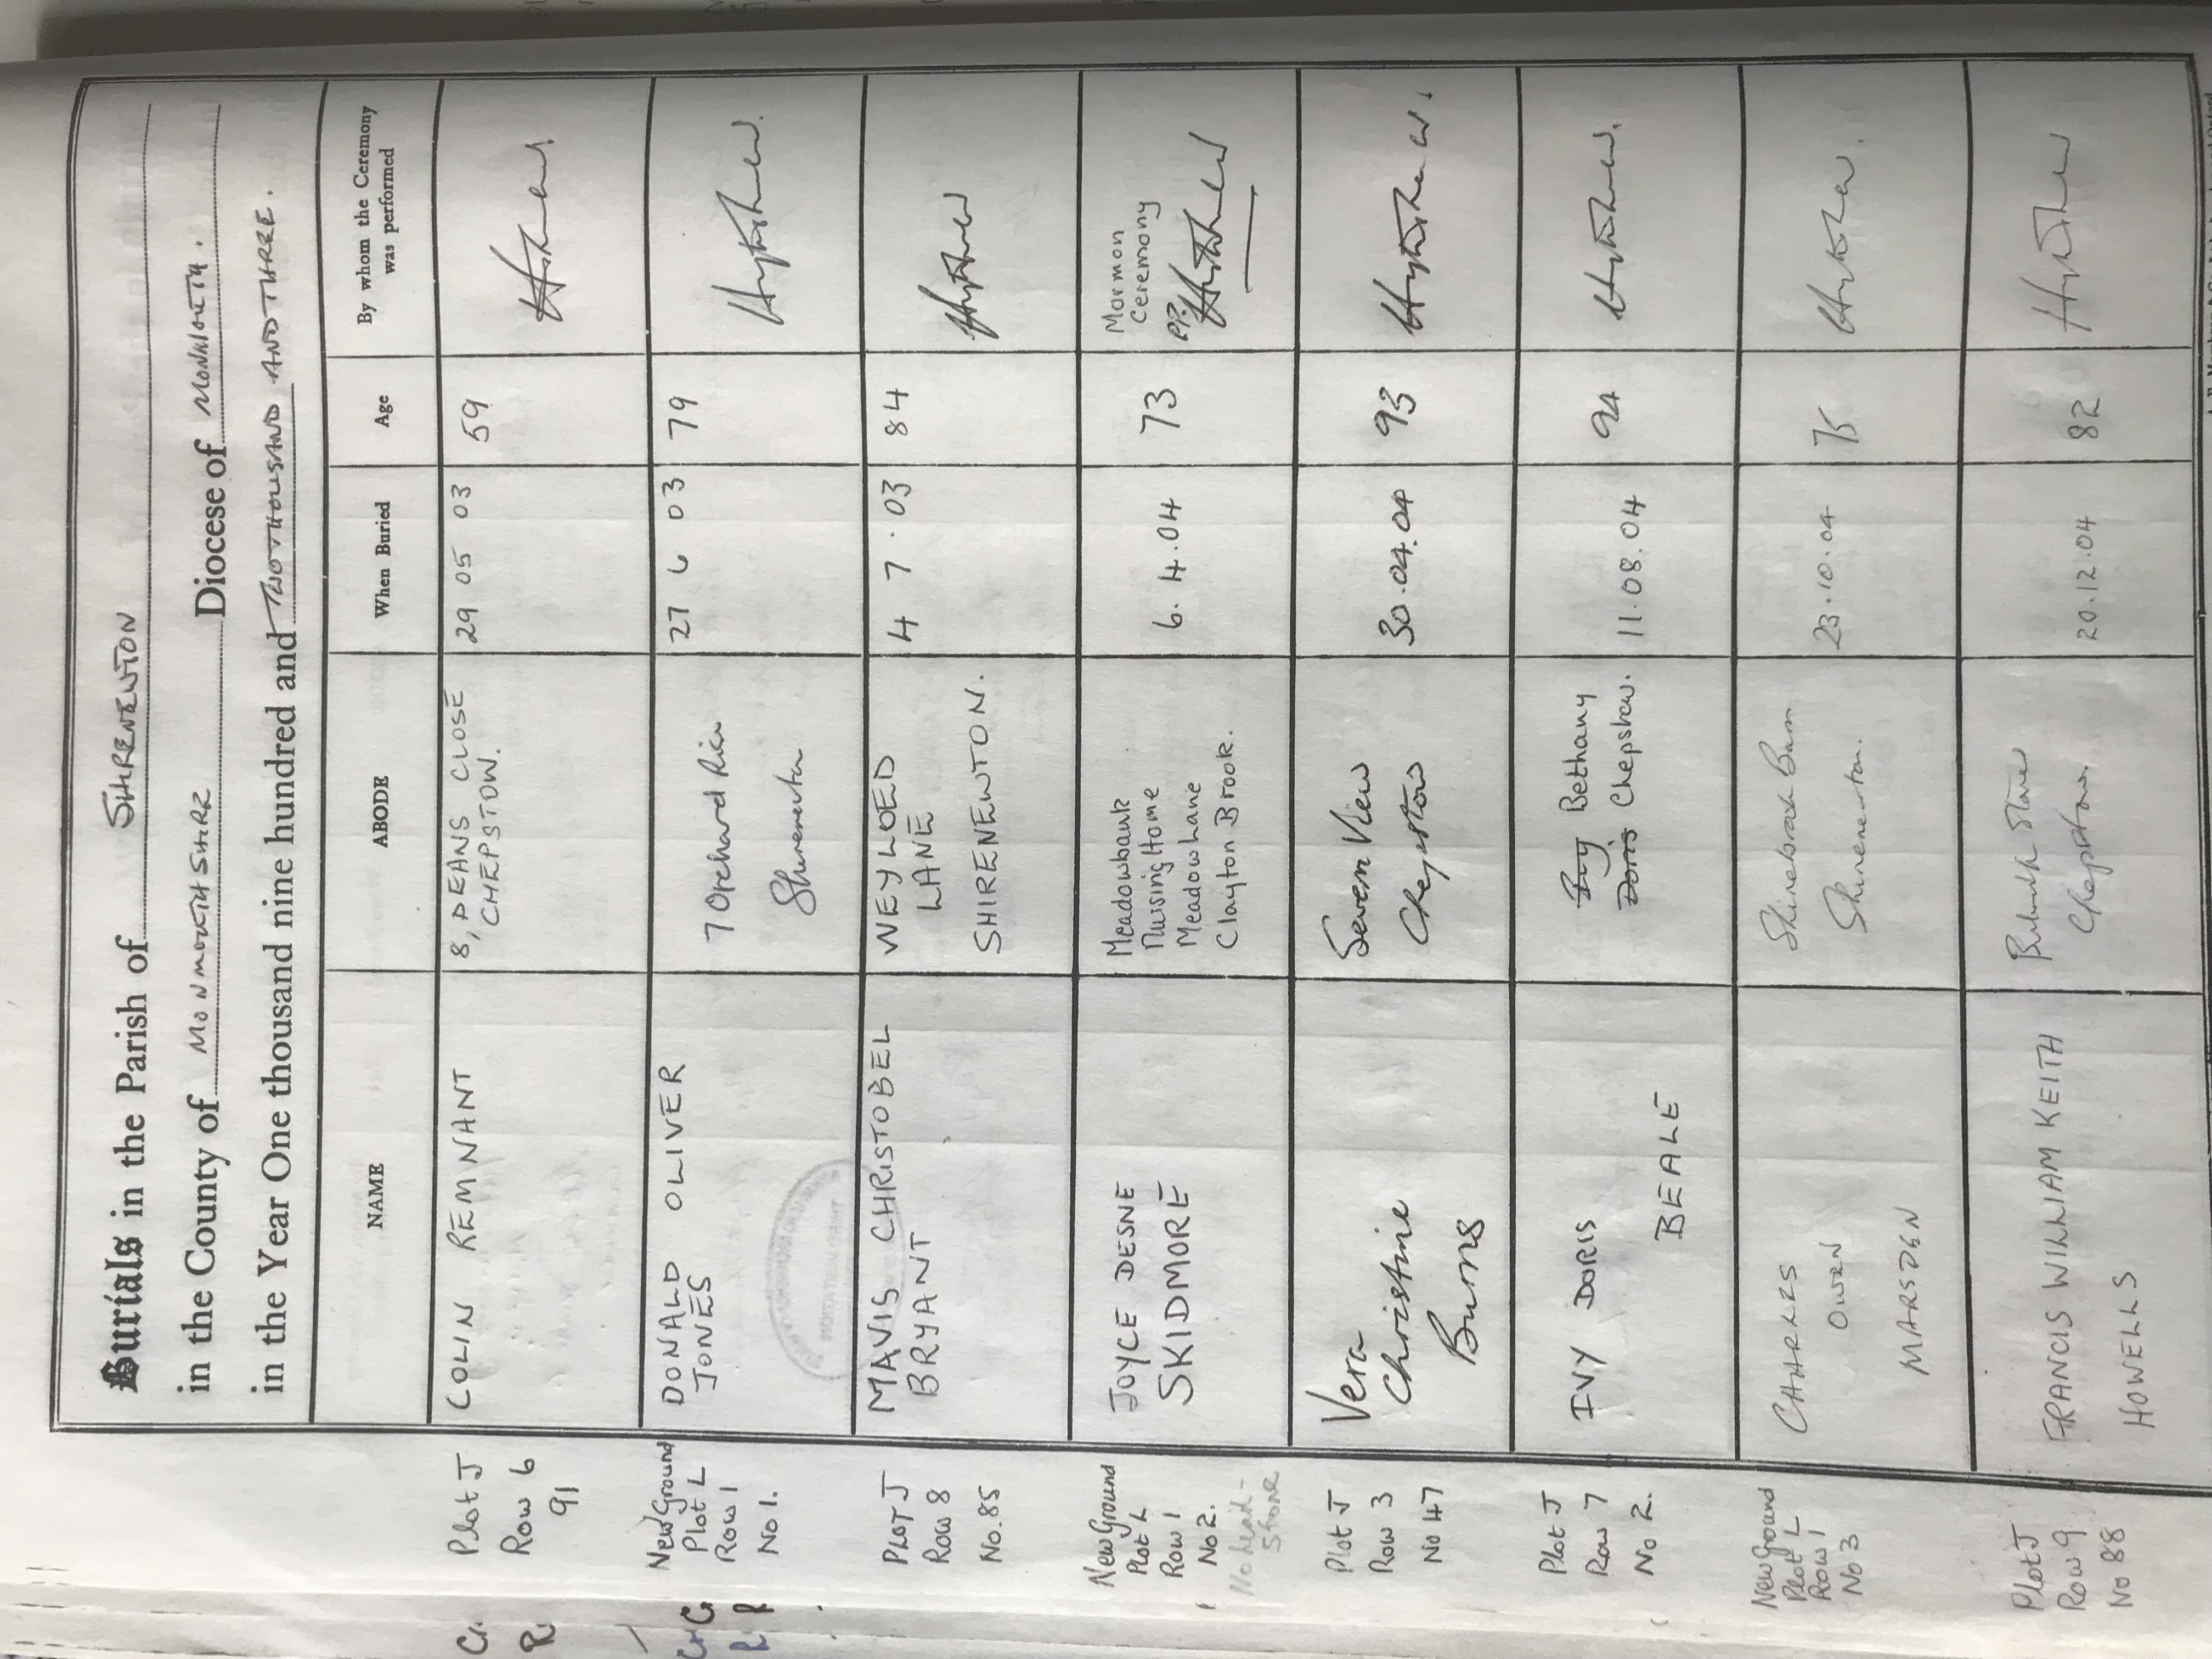 Burials in the Parish of SHIRENEWTON
in the County of MONMOUTHSHIRE Diocese of MONMOUTH.
in the Year One thousand nine hundred and TWO THOUSAND AND THREE.
NAME ABODE When Buried Age By whom the Ceremony was performed
Plot J
Row 6
91
COLIN REMNANT
8, DEANS CLOSE
CHEPSTOW.
29 05 03
59
New Ground
Plot L
Row 1
No 1.
DONALD OLIVER
JONES
7 Orchard Rise
Shirenewton
27 6 03
79
Plot J
Row 8
No. 85
MAVIS CHRISTOBEL
BRYANT
WEYLOED
LANE
SHIRENEWTON.
4 7 . 03
84
New Ground
Plot L
Row 1
No 2.
No head-
stone
JOYCE DESNE
SKIDMORE
Meadowbank
Nursing Home
Meadow Lane
Clayton Brook.
6. 4. 04
73
Mormon
Ceremony
PP.
Plot J
Row 3
No 47
Vera
Christine
Burns
Severn View
Chepstow
30.04.04
93
Plot J
Row 7
No 2.
IVY DORIS
BEALE
Ivy Bethany
Doris Chepstow.
11.08.04
94
New Ground
Plot L
Row 1
No 3
CHARLES
OWEN
MARSDEN
Shirebrook Barn
Shirenewton.
23.10.04
75
Plot J
Row 9
No 88
FRANCIS WILLIAM KEITH
HOWELLS
Chepstow
20.12.04
82